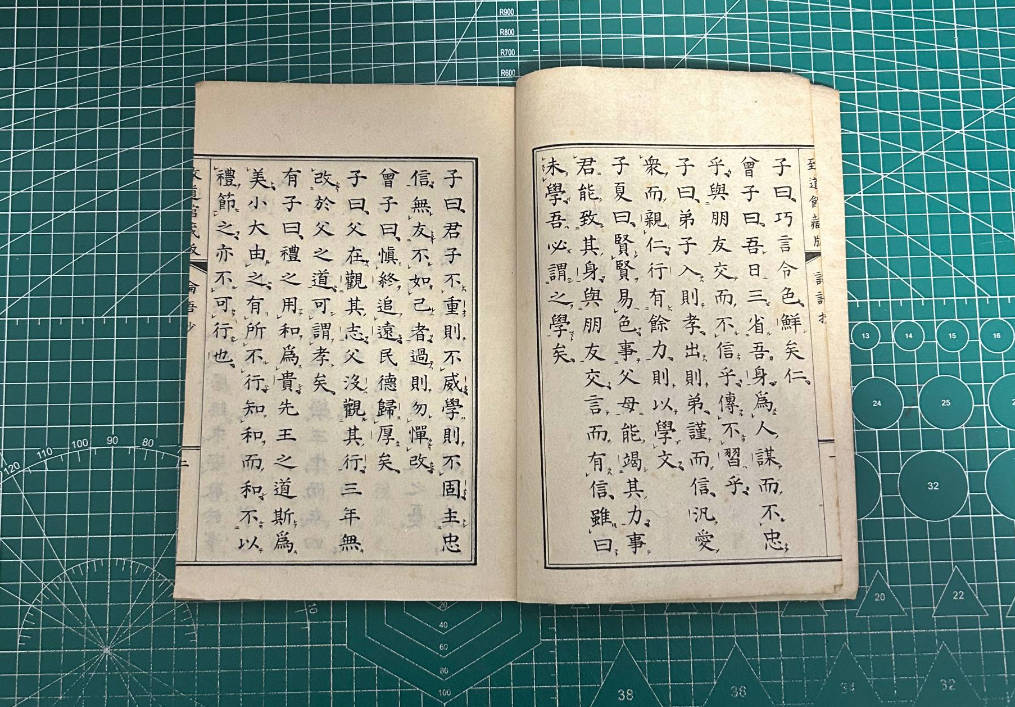 子曰巧言令色鮮矣仁
曾子曰吾日三省吾身爲人謀而不忠
乎與朋友交而不信乎傳不習乎
子曰弟子入則孝出則弟謹而信汎愛
衆而親仁行有餘力則以學文
子夏曰賢賢易色事父母能竭其力事
君能致其身與朋友交言而有信雖曰
未學吾必謂之學矣
子曰君子不重則不威學則不固主忠
信無友不如己者過則勿憚改
曾子曰愼終追遠民德歸厚矣
子曰父在觀其志父沒觀其行三年無
改於父之道可謂孝矣
有子曰禮之用和爲貴先王之道斯爲
美小大由之有所不行知和而和不以
禮節之亦不可行也
二
R900
R800
R700
R600
13
14
15
16
24
25
32
20
22
38
36
34
32
120
110
100
90
80
20
40
60
80
100